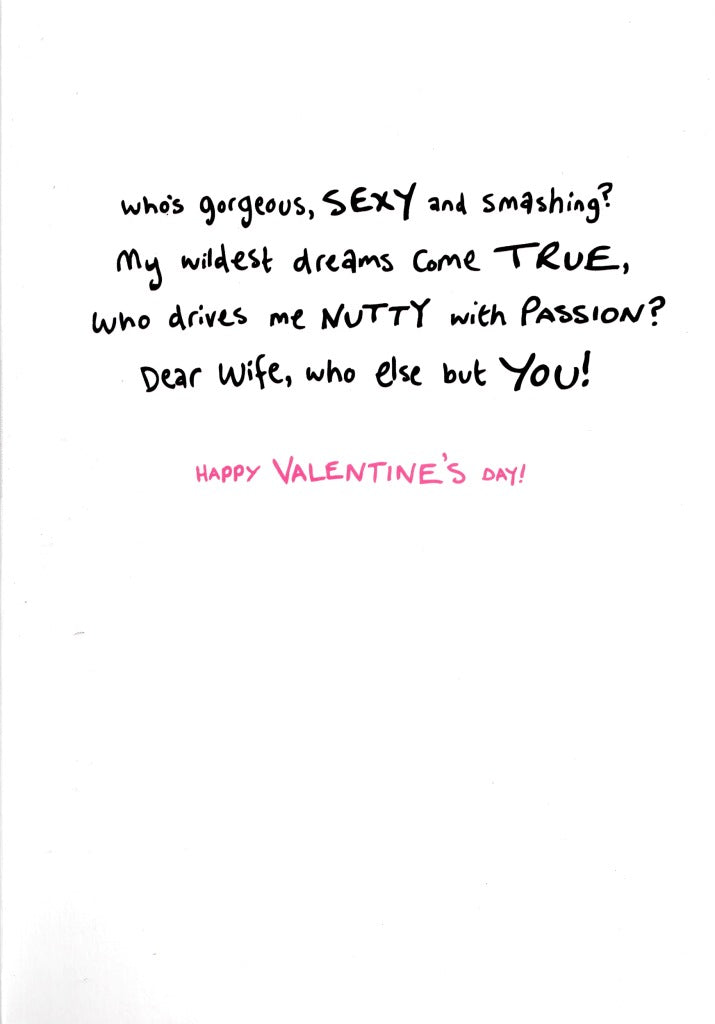 who's gorgeous, SEXY and smashing?
My wildest dreams come TRUE,
who drives me NUTTY with PASSION?
Dear Wife, who else but YOU!
HAPPY VALENTINE'S DAY!